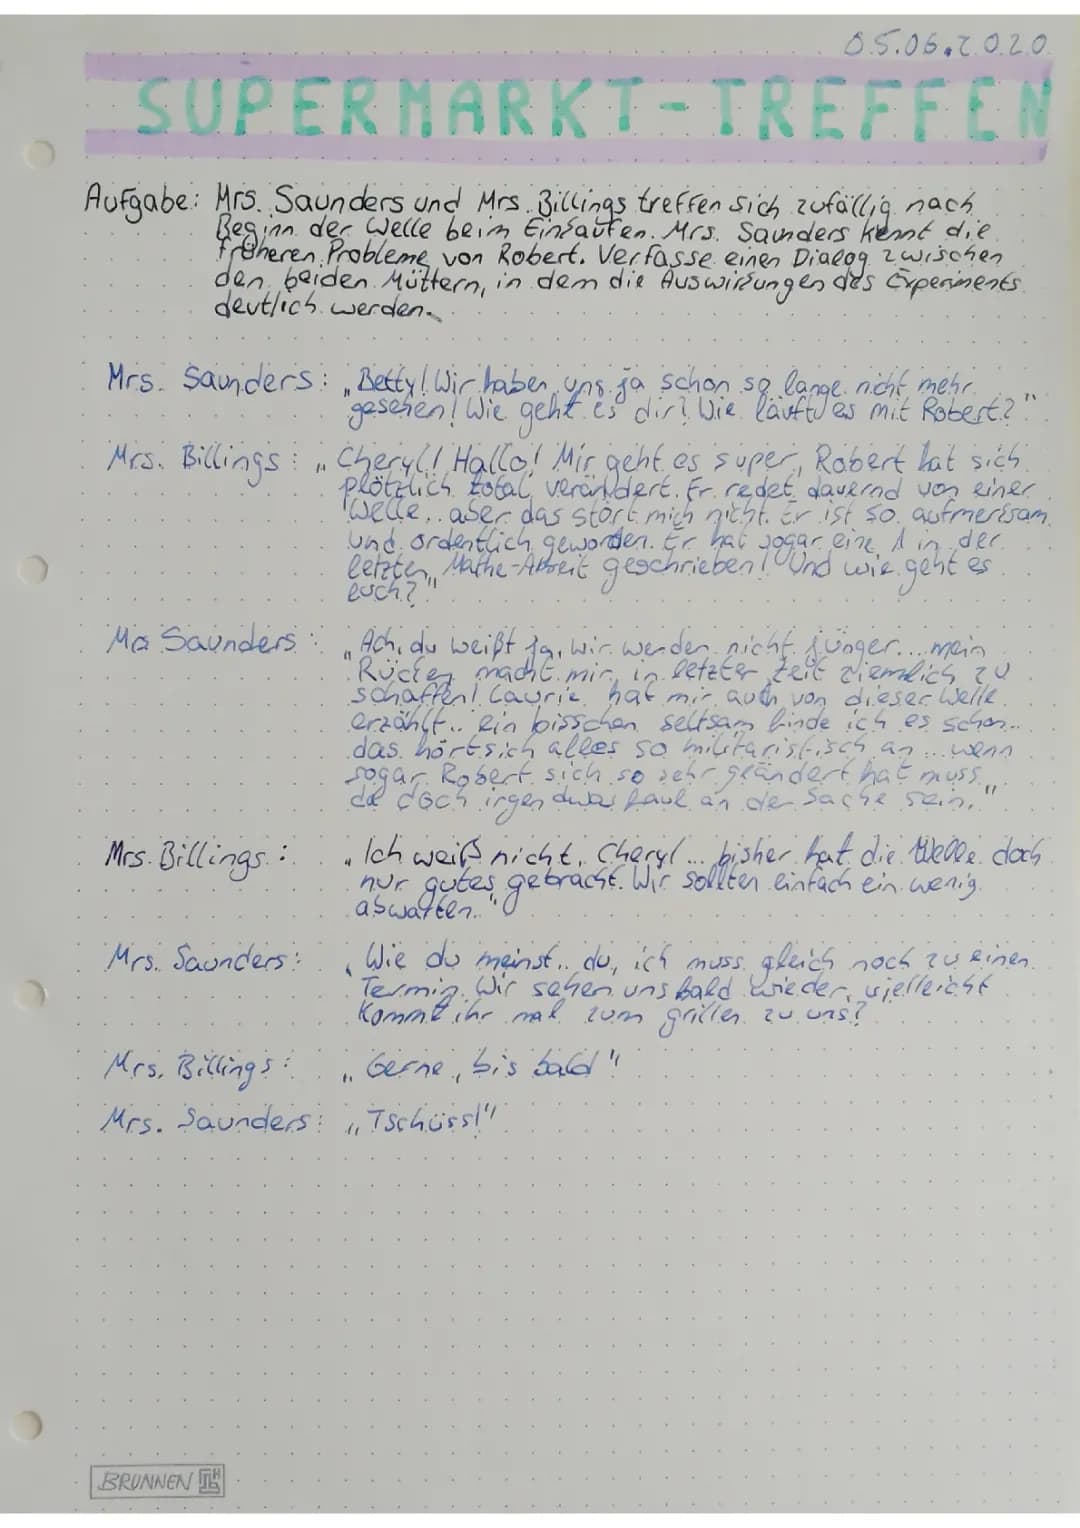 05.06.2020
SUPERMARKT-TREFFEN
Aufgabe: Mrs. Saunders und Mrs. Billings treffen sich zufällig nach
Beginn der Welle beim Einkaufen. Mrs. Saunders kennt die
früheren Probleme von Robert. Verfasse einen Dialog zwischen
den beiden Müttern, in dem die Auswirkungen des Experiments
deutlich werden.
Mrs. Saunders: „Betty! Wir haben uns ja schon so lange nicht mehr
gesehen! Wie geht es dir? Wie läuft es mit Robert?"
Mrs. Billings: „Cheryl! Hallo! Mir geht es super, Robert hat sich
plötzlich total verändert. Er redet dauernd von einer
Welle.. aber das stört mich nicht. Er ist so aufmerksam
und ordentlich geworden. Er hat sogar eine 1 in der
letzten Mathe-Arbeit geschrieben! Und wie geht es
euch?"
Mrs Saunders: „Ach, du weißt ja, wir werden nicht jünger... mein
Rücken macht mir in letzter Zeit ziemlich zu
schaffen! Laurie hat mir auch von dieser Welle
erzählt.. ein bisschen seltsam finde ich es schon..
das hört sich alles so militaristisch an... wenn
sogar Robert sich so sehr geändert hat muss
da doch irgendwas faul an der Sache sein."
Mrs. Billings: „Ich weiß nicht, Cheryl... bisher hat die Welle doch
nur gutes gebracht. Wir sollten einfach ein wenig
abwarten."
Mrs. Saunders: „Wie du meinst.. du, ich muss gleich noch zu einen
Termin. Wir sehen uns bald wieder, vielleicht
kommt ihr mal zum grillen zu uns?"
Mrs. Billings: „Gerne, bis bald"!
Mrs. Saunders: „Tschüss!"
BRUNNEN